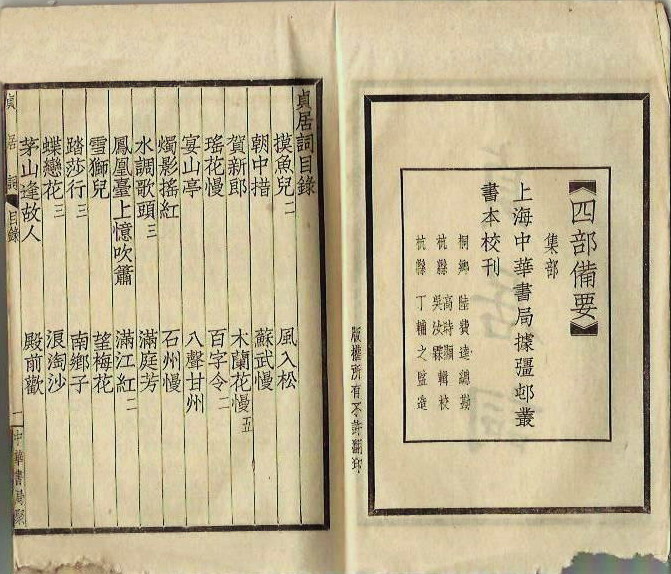 【四部備要】
集部
上海中華書局據彊邨叢
書本校刊
桐鄉 陸費逵總勘
杭縣 高時顯 吳汝霖 輯校
杭縣 丁輔之監造
版權所有不許翻印
貞居詞目錄
摸魚兒二 風入松
朝中措 蘇武慢
賀新郎 木蘭花慢五
瑤花慢 百字令二
宴山亭 八聲甘州
燭影搖紅 石州慢
水調歌頭三 滿庭芳
鳳凰臺上憶吹簫 滿江紅二
雪獅兒 望梅花
踏莎行三 南鄉子
蝶戀花三 浪淘沙
茅山逢故人 殿前歡
貞居詞 目錄 一 中華書局聚